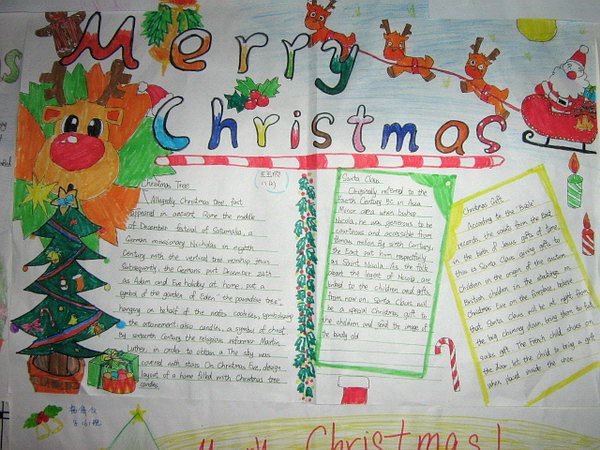 Merry
Christmas
Christmas Tree
Allegedly Christmas tree, first
appeared in ancient Rome the middle
of December festival of Saturnalia, a
German missionary Nicholas in eighth
century with the vertical tree
Subsequently, the Germans put December 24th
as Adam and Eve holiday at home, put a
symbol of the garden of Eden "the paradise tree"
hanging on behalf of the cookies, symbolizing
the atonement also candles, a symbol of christ
by sixteenth century the religious reformer Martin.
Luther, in order to obtain a The sky was
covered with stars On Christmas Eve, design
layout of a home filled with Christmas tree
candles
Santa Claus
Originally referred to the
fourth century BC in Asia
Minor area when bishop
Nicola, he was generous to be
courteous and accessible from
famous nation. By sixth century,
the East put him respectfully
as Saint Nicola. As the folk
about the legend of Nicola are
linked to the children and gifts
from now on, Santa Claus will
be a special Christmas gift to
the children and send the image of
the kindly old
Christmas Gift
According to the "Bible"
records, the saints from the East
in the birth of Jesus gift of time,
this is Santa Claus giving gifts to
children in the origin of the custom
British children in the stockings on
Christmas Eve on the fireplace, believe
that Santa Claus will be at night from
the big chimney down, bring them to full
socks gift. The French child shoes on
the door, let the child to bring a gift
when placed inside the
Merry Christmas!